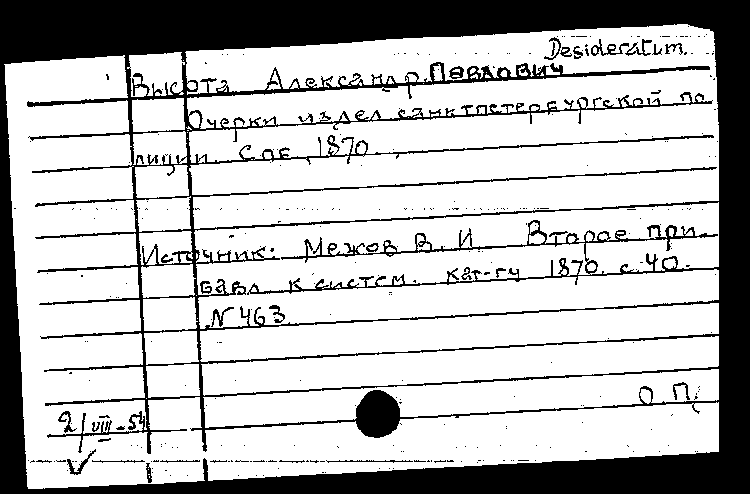 Desideratum.
Высота Александр Павлович
Очерки из дел санктпетербургской по
лиции. СПБ, 1870.,
Источник: Межов В. И. Второе при-
бавл. к систем. кат-гу 1870. с. 40.
N 463.
О. П.
2/VIII-54